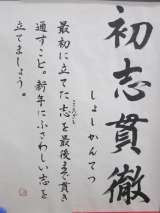 初志貫徹
しょしかんてつ
最初に立てた志を最後まで貫き
こころざし
通すこと。新年にふさわしい志を
立てましょう。